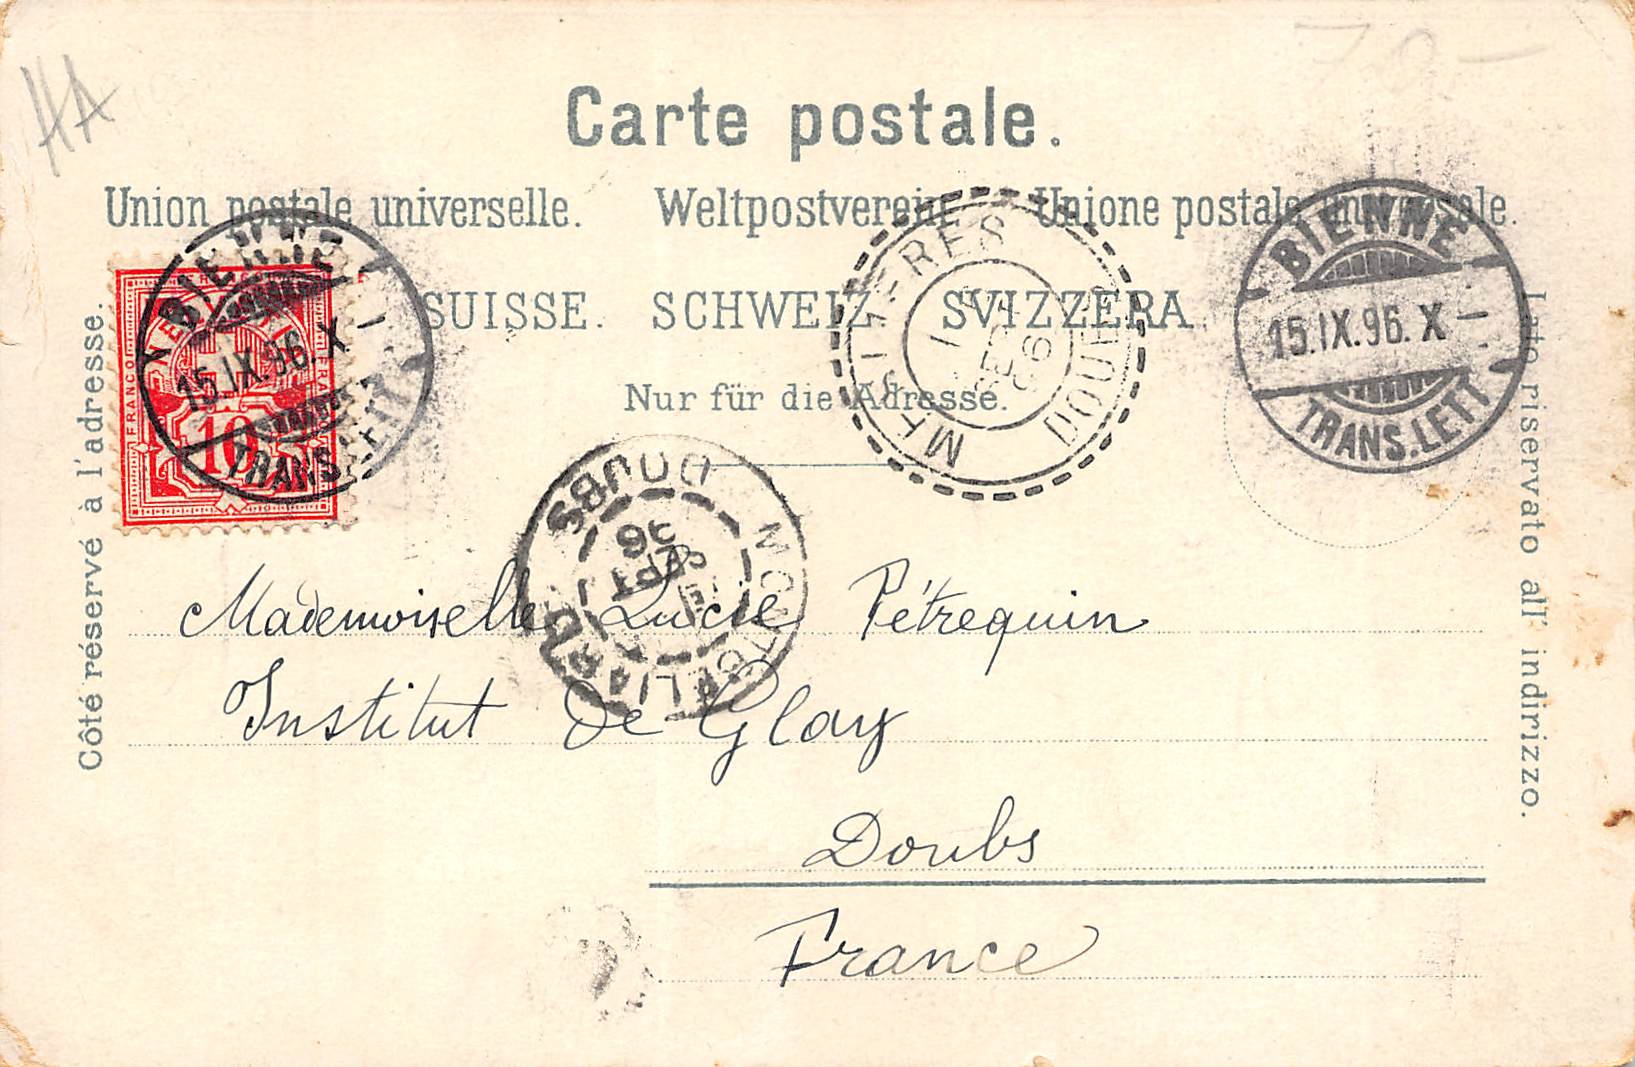 HA
70.-
Carte postale.
Union postale universelle. Weltpostverein. Unione postale universale.
SUISSE. SCHWEIZ. SVIZZERA.
Nur für die Adresse.
Côté réservé à l'adresse.
Lato riservato all' indirizzo.
FRANCO
10
BIENNE
15.IX.96.X
TRANS.LETT
MÉZIÈRES
SEPT
96
DOUBS
BIENNE
15.IX.96.X
TRANS.LETT
MONTBÉLIARD
SEPT
96
DOUBS
Mademoiselle Lucie Pétrequin
Institut de Glay
Doubs
France